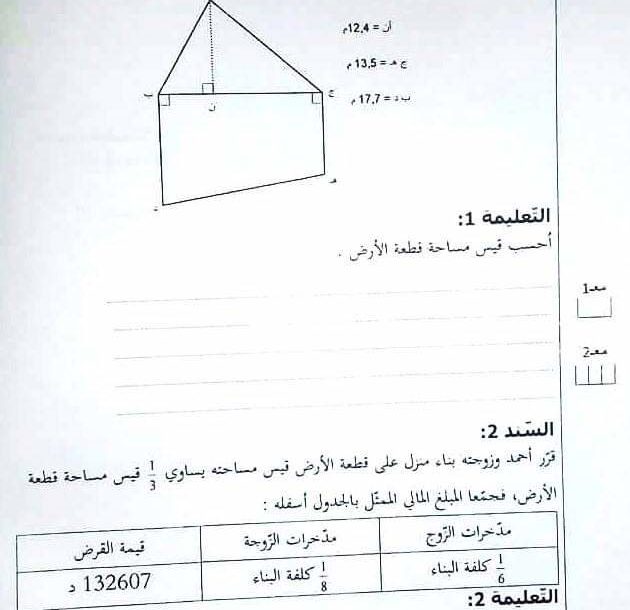 أن = 12,4م
ج هـ = 13,5 م
ب د = 17,7 م
ب
ج
ن
هـ
د
التّعليمة 1:
أحسب قيس مساحة قطعة الأرض .
معـ1
معـ2
السّند 2:
قرّر أحمد وزوجته بناء منزل على قطعة الأرض قيس مساحته يساوي 1/3 قيس مساحة قطعة
الأرض، فجمّعا المبلغ المالي الممثّل بالجدول أسفله :
مدّخرات الزّوج مدّخرات الزّوجة قيمة القرض
1/6 كلفة البناء 1/8 كلفة البناء 132607 د
التّعليمة 2: